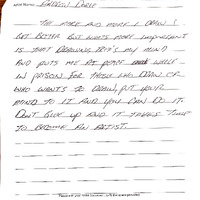 Artist Name: Darrow Doris
The more and more I draw I
get better but whats more important
is that drawing trip's my mind
and puts me at peace while
in prison for those who draw or
who wants to draw, put your
mind to it and you can do it.
Don't give up and it takes time
to become an artist.